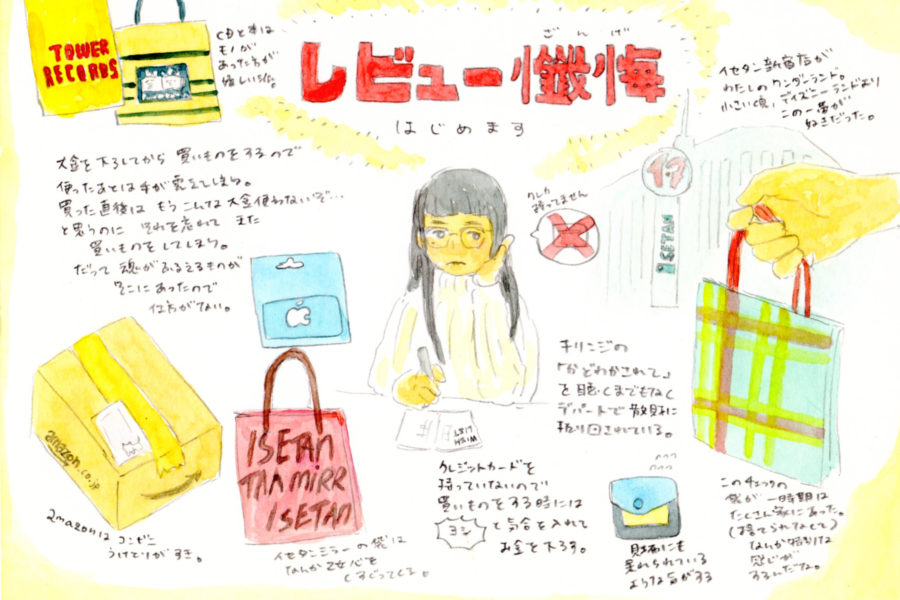 TOWER
RECORDS
CDと本は
モノが
あった方が
嬉しいらた。
ざんげ
レビュー懺悔
はじめます
イセタン新宿店が
わたしのワンダーランド。
小さい頃、ディズニーランドより
この一帯が
好きだった。
大金を下ろしてから 買いものをするので
使ったあとは手が震えてしまう。
買った直後は もうこんな大金使わないぞ…
と思うのに それを忘れて また
買いものをしてしまう。
だって 魂がふるえるものが
そこにあったので
仕方がない。
クレカ
持ってません
ISETAN
amazon.co.jp
amazonは コンビニ
うけとりがすき。
ISETAN
MIRR
ISETAN
イセタンミラーの袋は
なんか乙女心を
くすぐってくる。
WISH
LIST
クレジットカードを
持っていないので
買いものをする時には
ヨシ
と気合を入れて
お金を下ろす。
キリンジの
「かどわかされて」
を聴くまでもなく
デパートで散財に
されている。
財布にも
呆れられている
ような気がする
このチェックの
袋が一時期は
たくさん家にあった。
(捨てられなくて)
なんか特別な
感じが
するんだな。